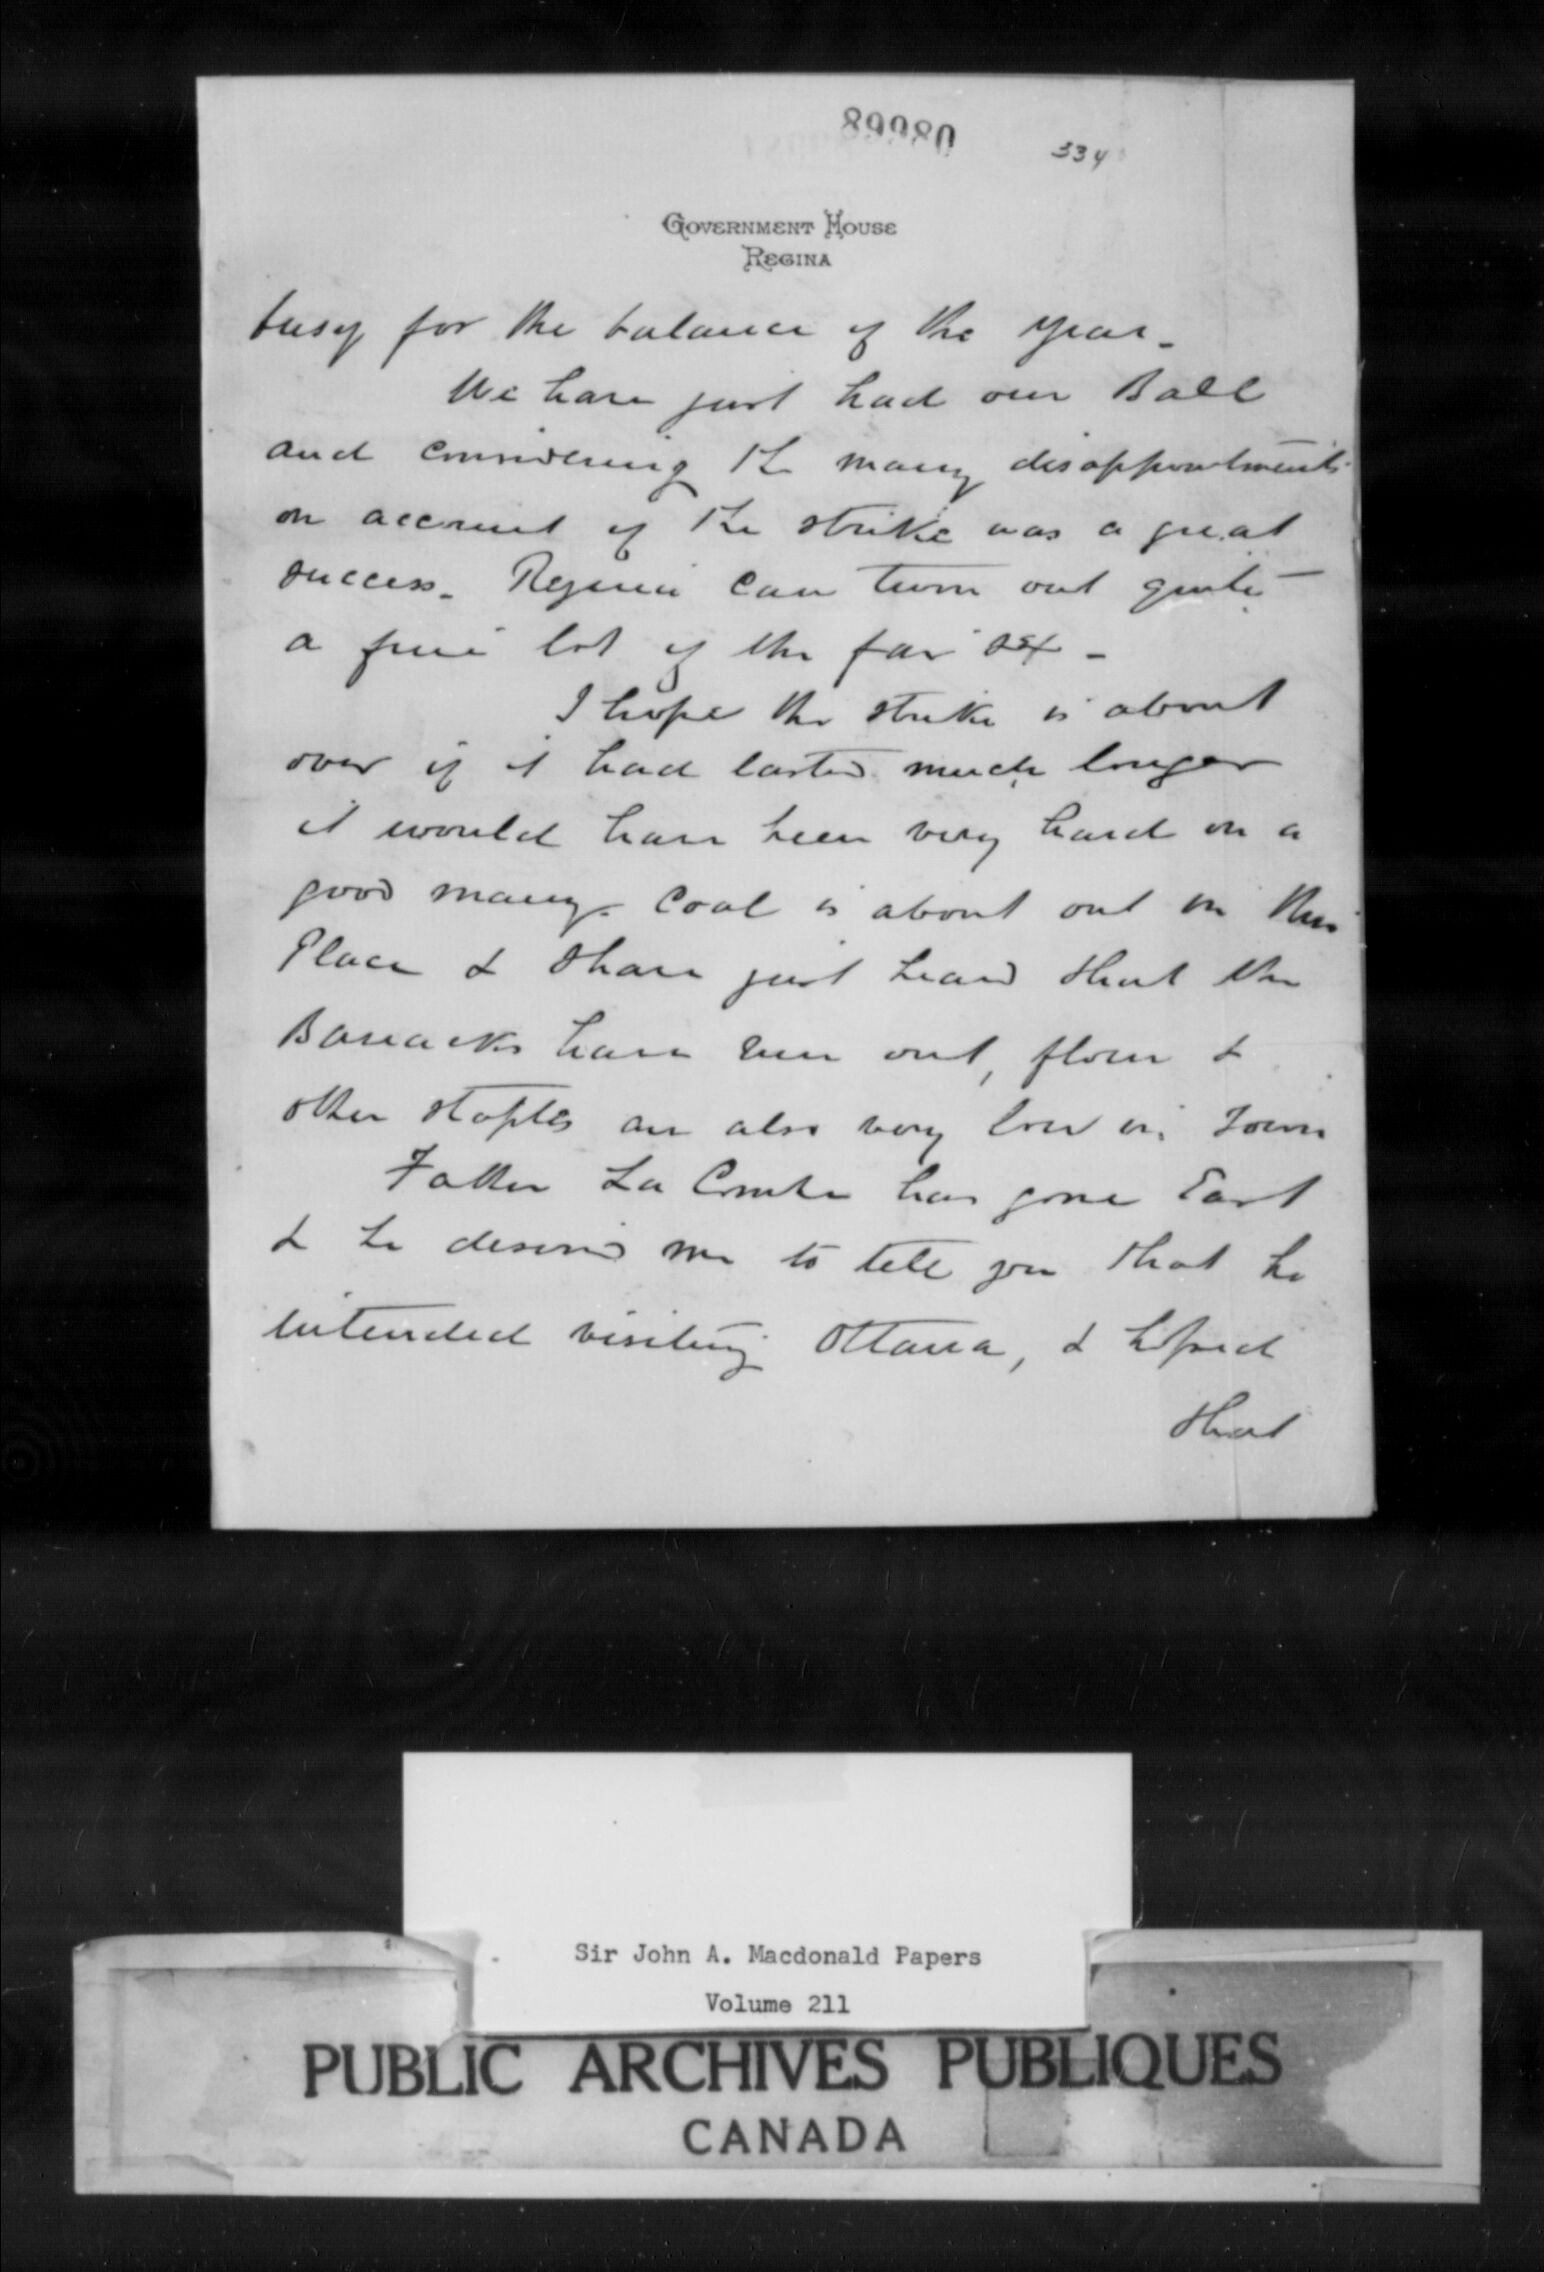 89980
334
GOVERNMENT HOUSE
REGINA
busy for the balance of the year.
We have just had our Ball
and considering the many disappointments
on account of the strike was a great
success. Regina can turn out quite
a fine lot of the fair sex -
I hope the strike is about
over if it had lasted much longer
it would have been very hard on a
good many. Coal is about out in this
Place & I have just heard that the
Barracks have run out, flour &
other staples are also very low in Town
Father La Combe has gone East
& he desired me to tell you that he
intended visiting Ottawa, & hoped
that
Sir John A. Macdonald Papers
Volume 211
PUBLIC ARCHIVES PUBLIQUES
CANADA